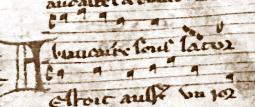 A biaucaire sous la tor
Estoit auss̄ vn ior